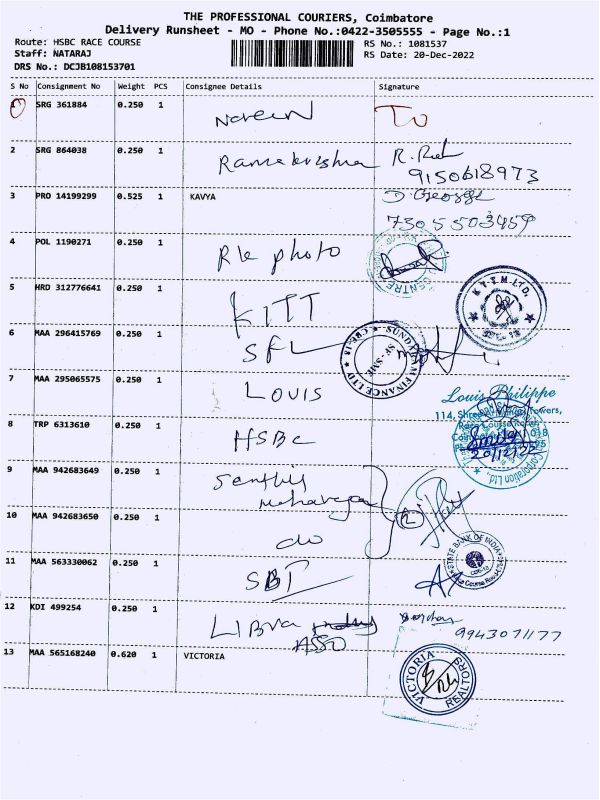 THE PROFESSIONAL COURIERS, Coimbatore
Delivery Runsheet - MO - Phone No.:0422-3505555 - Page No.:1
Route: HSBC RACE COURSE
RS No.: 1081537
Staff: NATARAJ
RS Date: 20-Dec-2022
DRS No.: DCJB108153701
S No Consignment No Weight PCS Consignee Details Signature
SRG 361884 0.250 1 Naveen
2 SRG 864038 0.250 1 Ramakrishna
9150618973
3 PRO 14199299 0.525 1 KAVYA D. George
7305503459
4 POL 1190271 0.250 1 photo
5 HRD 312776641 0.250 1 KITT K.T.T.M.LTD.
6 MAA 296415769 0.250 1 SFL SUNDARAM FINANCE LTD SF-SME
7 MAA 295065575 0.250 1 LOUIS
Louis Philippe
8 TRP 6313610 0.250 1 HSBC
Corporation Ltd.
20/12/22
9 MAA 942683649 0.250 1 Senthil
10 MAA 942683650 0.250 1 do 2
11 MAA 563330062 0.250 1 SBI STATE BANK OF INDIA
12 KDI 499254 0.250 1 LIBra ASSO
9943071177
13 MAA 565168240 0.620 1 VICTORIA VICTORIA REALTORS